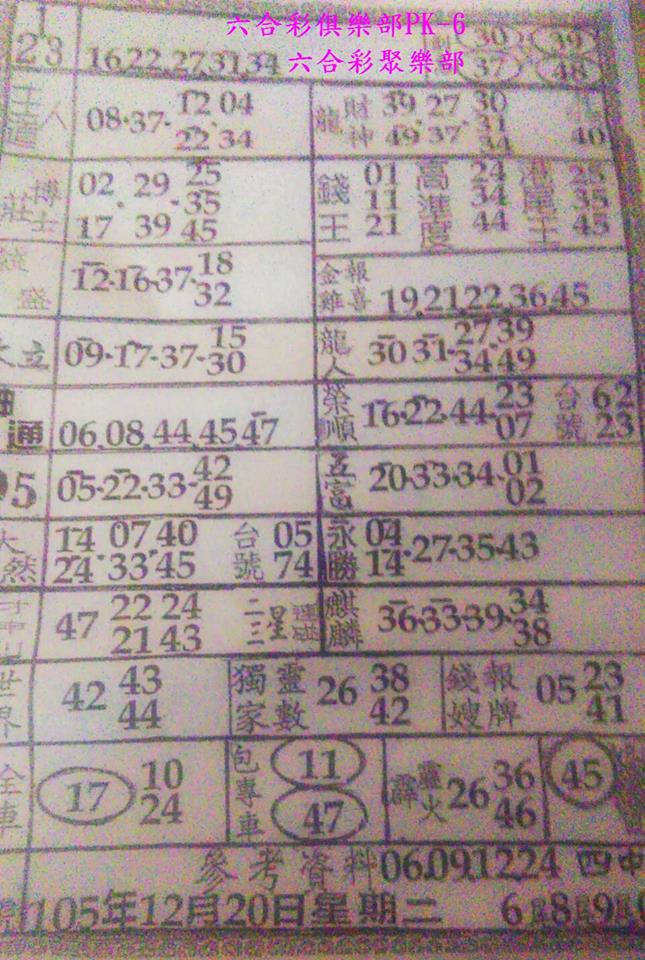 六合彩俱樂部PK-6
六合彩聚樂部
23 16.22.27.31.34
30 39
37
08.37. 12 04
22 34
龍 財神 39 27 30
49 37 31
34
40
莊 博士 02 29 25
35
17 39 45
錢王 01 高準度 24 25
11 34 35
21 44 45
12.16.37. 18
盛 32
金雞報喜 19.21.22.36.45
立 09.17.37. 15
30
龍人 30 31. 27.39
34.49
通 06.08.44.45.47
榮順 16.22.44. 23 台號 62
07 23
5 05.22.33. 42
49
五富 20.33.34. 01
02
然 14 07 40 台號 05
24 33 45 74
永勝 04 .27.35.43
14
47 22 24 二三星
21 43
麒麟 36.33.39. 34
38
世界 42 43
44
獨家靈數 26 38
42
錢嫂報牌 05 23
41
全車 17 10
24
包專車 11
47
霹靂火 26 36
46
45
參考資料 06.09.12.24 四中
105年12月20日星期二 6尾8尾9尾